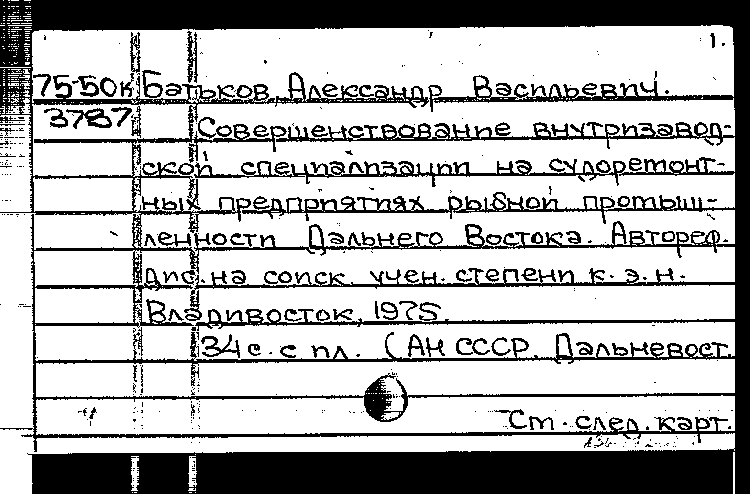 1.
75-50к Батьков, Александр Васильевич.
3787 Совершенствование внутризавод-
ской специализации на судоремонт-
ных предприятиях рыбной промыш-
ленности Дальнего Востока. Автореф.
дис. на соиск. учен. степени к. э. н.
Владивосток, 1975.
34 с. с ил. (АН СССР. Дальневост.
Ст. след. карт.